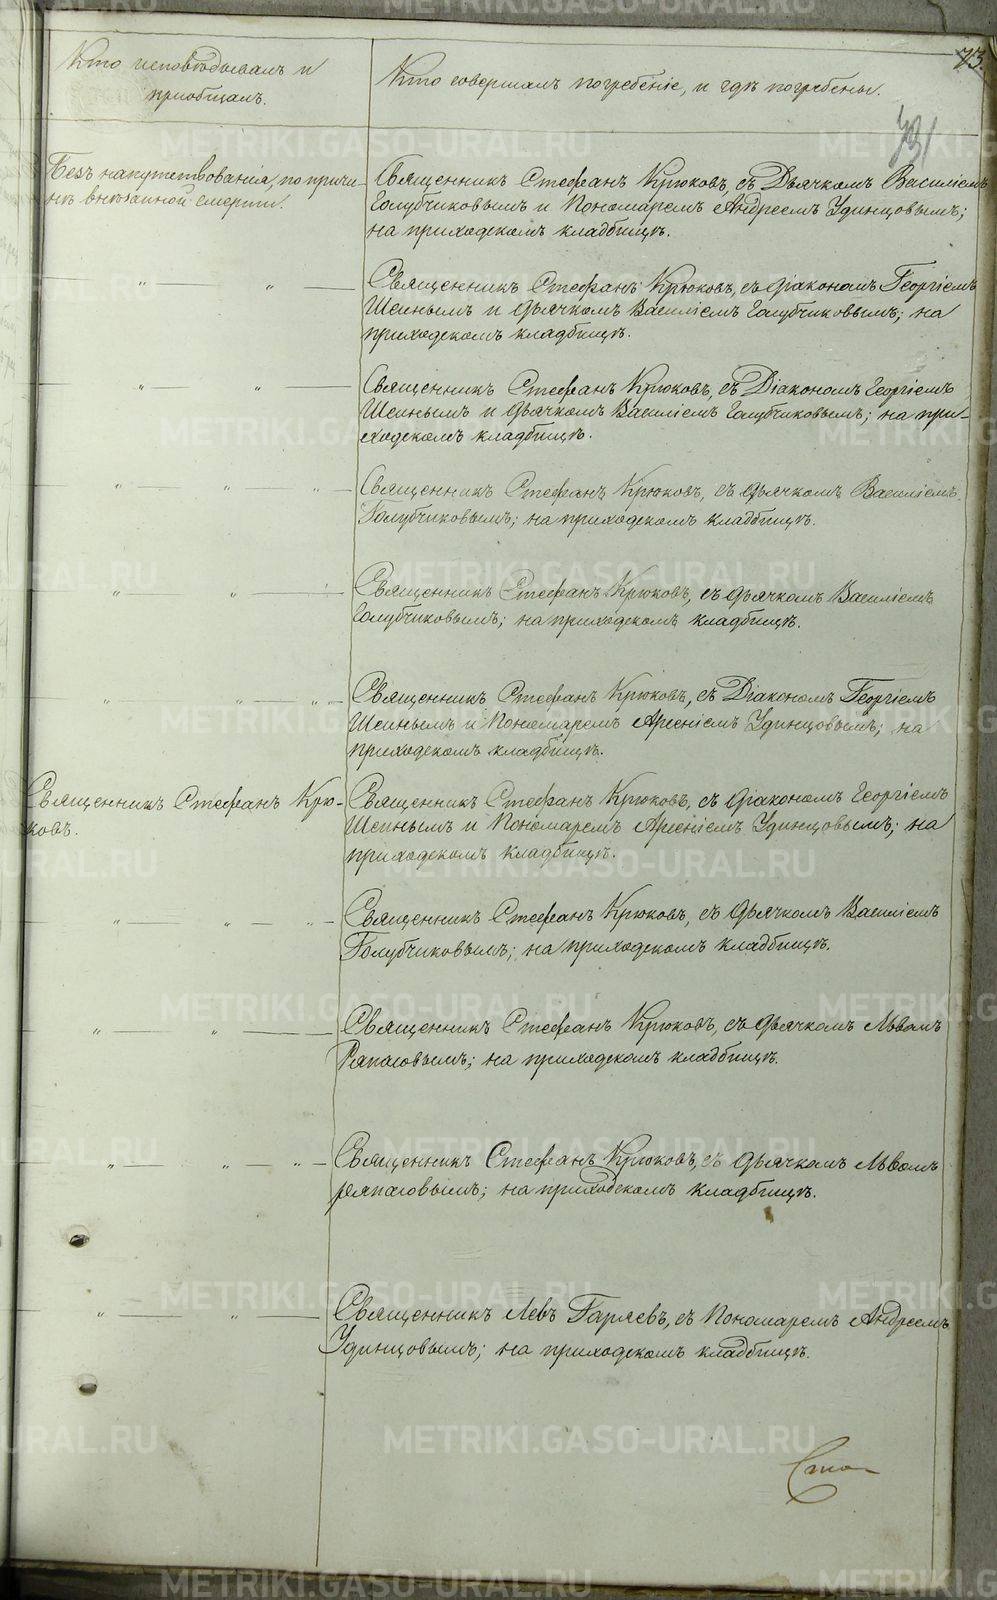 73.
731
Кто исповѣдывалъ и
пріобщалъ.
Кто совершалъ погребеніе, и гдѣ погребены.
Безъ напутствованія, по причи-
нѣ внезапной смерти.
Священникъ Стефанъ Крюковъ, съ Дьячкомъ Василіемъ
Голубчиковымъ и Пономаремъ Андреемъ Удинцовымъ;
на приходскомъ кладбищѣ.
" "
Священникъ Стефанъ Крюковъ, съ Діакономъ Георгіемъ
Шеинымъ и Дьячкомъ Василіемъ Голубчиковымъ; на
приходскомъ кладбищѣ.
" "
Священникъ Стефанъ Крюковъ, съ Діакономъ Георгіемъ
Шеинымъ и Дьячкомъ Василіемъ Голубчиковымъ; на при-
ходскомъ кладбищѣ.
" " "
Священникъ Стефанъ Крюковъ, съ Дьячкомъ Василіемъ
Голубчиковымъ; на приходскомъ кладбищѣ.
" "
Священникъ Стефанъ Крюковъ, съ Дьячкомъ Василіемъ
Голубчиковымъ; на приходскомъ кладбищѣ.
" " "
Священникъ Стефанъ Крюковъ, съ Діакономъ Георгіемъ
Шеинымъ и Пономаремъ Арсеніемъ Удинцовымъ; на
приходскомъ кладбищѣ.
Священникъ Стефанъ Крю-
ковъ.
Священникъ Стефанъ Крюковъ, съ Діакономъ Георгіемъ
Шеинымъ и Пономаремъ Арсеніемъ Удинцовымъ; на
приходскомъ кладбищѣ.
" " "
Священникъ Стефанъ Крюковъ, съ Дьячкомъ Василіемъ
Голубчиковымъ; на приходскомъ кладбищѣ.
" "
Священникъ Стефанъ Крюковъ, съ Дьячкомъ Львомъ
на приходскомъ кладбищѣ.
" " "
Священникъ Стефанъ Крюковъ, съ Дьячкомъ Львомъ
на приходскомъ кладбищѣ.
" "
Священникъ Левъ Гаряевъ, съ Пономаремъ Андреемъ
Удинцовымъ; на приходскомъ кладбищѣ.
METRIKI.GASO-URAL.RU